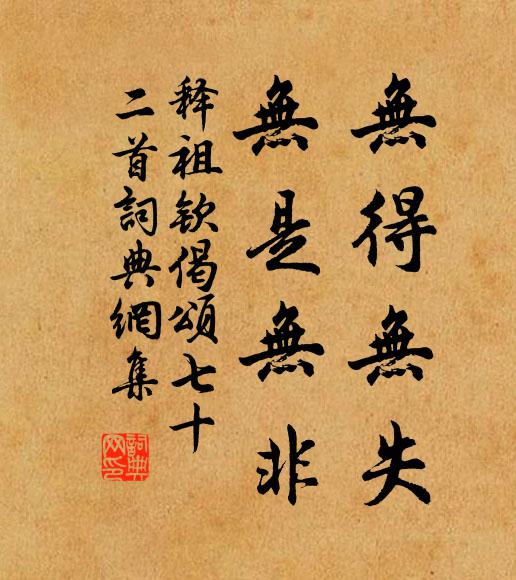 無得無失
無是無非
释祖欽偈頌七十
二首詞典網集
詞典
网印